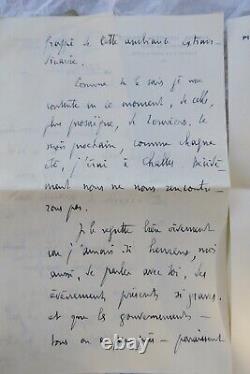 frappé de cette ambiance extraor-
dinaire.
Comme tu le sais je me
contente en ce moment, de celle,
plus prosaïque, de Louviers. Le
mois prochain, comme chaque
été, j'irai à Challes. Décidé-
ment nous ne nous rencontre-
rons pas.
Je le regrette bien vivement
car j'aurais été heureux, moi
aussi, de parler avec toi, des
événements présents si graves.
et que les gouvernements -
tous ou à peu près - paraissent